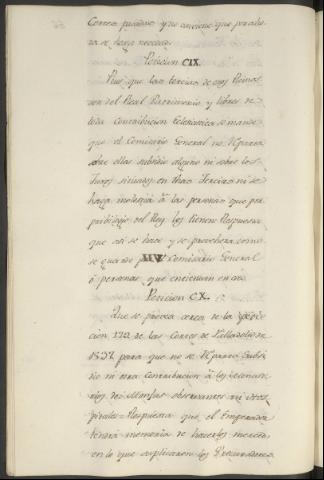 Peticion CIX.
Que las tercias de estos Reinos
son del Real Patrimonio y libres de
toda Contribucion Eclesiastica se mande
que el Comisario General no Reparta
sobre ellas subsidio alguno ni sobre los
Juros situados en dichas Tercias ni se
haga molestia á las personas que por
privilegio del Rey los tienen Respuesta
que así se hace y se proveherá como
se guarde por el Comisario General
ó personas que entiendan en ello
Peticion CX.
Que se provea acerca de la peti-
cion 122 de las Cortes de Valladolid de
1537 para que no se Reparta Subsi-
dio ni otra Contribucion á los
de Monjas observantes ni Hos-
pitales = Respuesta que el Emperador
tendrá memoria de hacerles merced
en lo que suplicaren los Procuradores